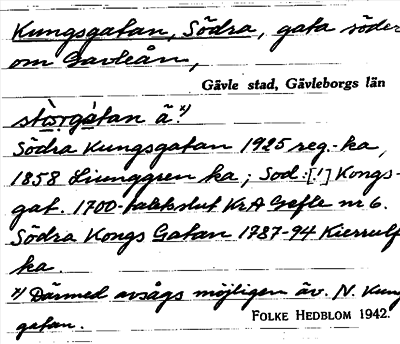 Kungsgatan, Södra, gata söder
om Gavleån,
Gävle stad, Gävleborgs län
stòrgátan ä. x)
Södra Kungsgatan 1925 reg.-ka,
1858 Ljunggren ka; Sod:[!] Kongs-
gat. 1700-talets slut KrA Gefle nr 6.
Södra Kongs Gatan 1787-94 Kierrulf
ka.
x) Därmed avsågs möjligen äv. N. Kung
gatan.
FOLKE HEDBLOM 1942.